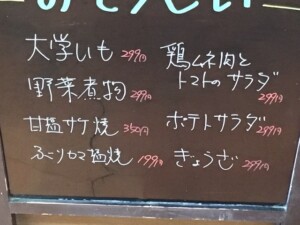 おそうざい
大学いも 299円
野菜煮物 299円
甘塩サケ焼 350円
ぶりカマ塩焼 199円
鶏ムネ肉と
トマトのサラダ
299円
ポテトサラダ 299円
ぎょうざ 299円